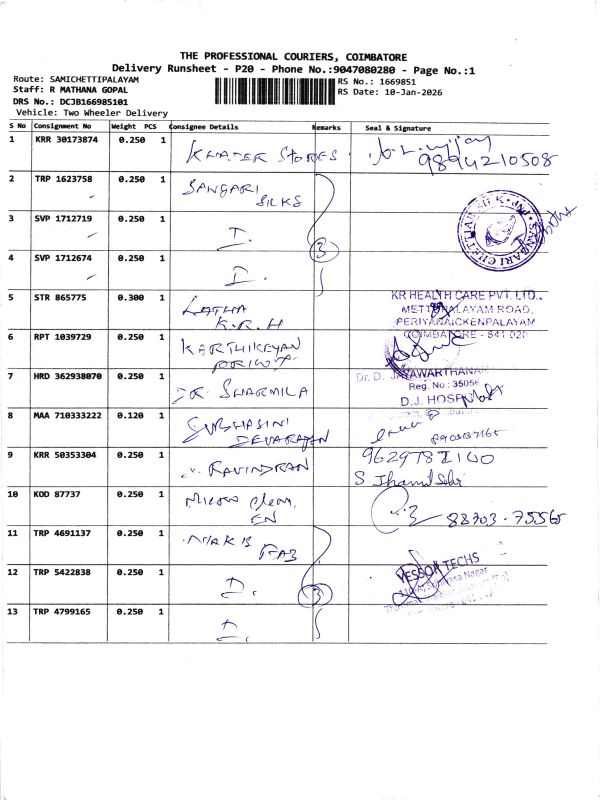 THE PROFESSIONAL COURIERS, COIMBATORE
Delivery Runsheet - P20 - Phone No.:9047080280 - Page No.:1
Route: SAMICHETTIPALAYAM
Staff: R MATHANA GOPAL
DRS No.: DCJB166985101
Vehicle: Two Wheeler Delivery
RS No.: 1669851
RS Date: 10-Jan-2026
S No Consignment No Weight PCS Consignee Details Remarks Seal & Signature
1 KRR 30173874 0.250 1 KHATER STORES
9894210508
2 TRP 1623758 0.250 1 SANGARI
SILKS
3 SVP 1712719 0.250 1 I. 3
4 SVP 1712674 0.250 1 I.
5 STR 865775 0.300 1 LATHA
K.R.H
KR HEALTH CARE PVT. LTD.,
METTUPALAYAM ROAD,
PERIYANAICKENPALAYAM
COIMBATORE - 641 020
6 RPT 1039729 0.250 1 KARTHIKEYAN
7 HRD 362938070 0.250 1 DR. SHARMILA
Dr. D. JAYAWARTHANA
Reg. No : 35056
D.J. HOSP
8 MAA 710333222 0.120 1 SUBHASINI
DEVARAJAN
9 KRR 50353304 0.250 1 RAVINDRAN
9629782100
10 KOD 87737 0.250 1 Micro
88703-75565
11 TRP 4691137 0.250 1
FAB
12 TRP 5422838 0.250 1 D. 3
VESSOR TECHS
13 TRP 4799165 0.250 1 I.